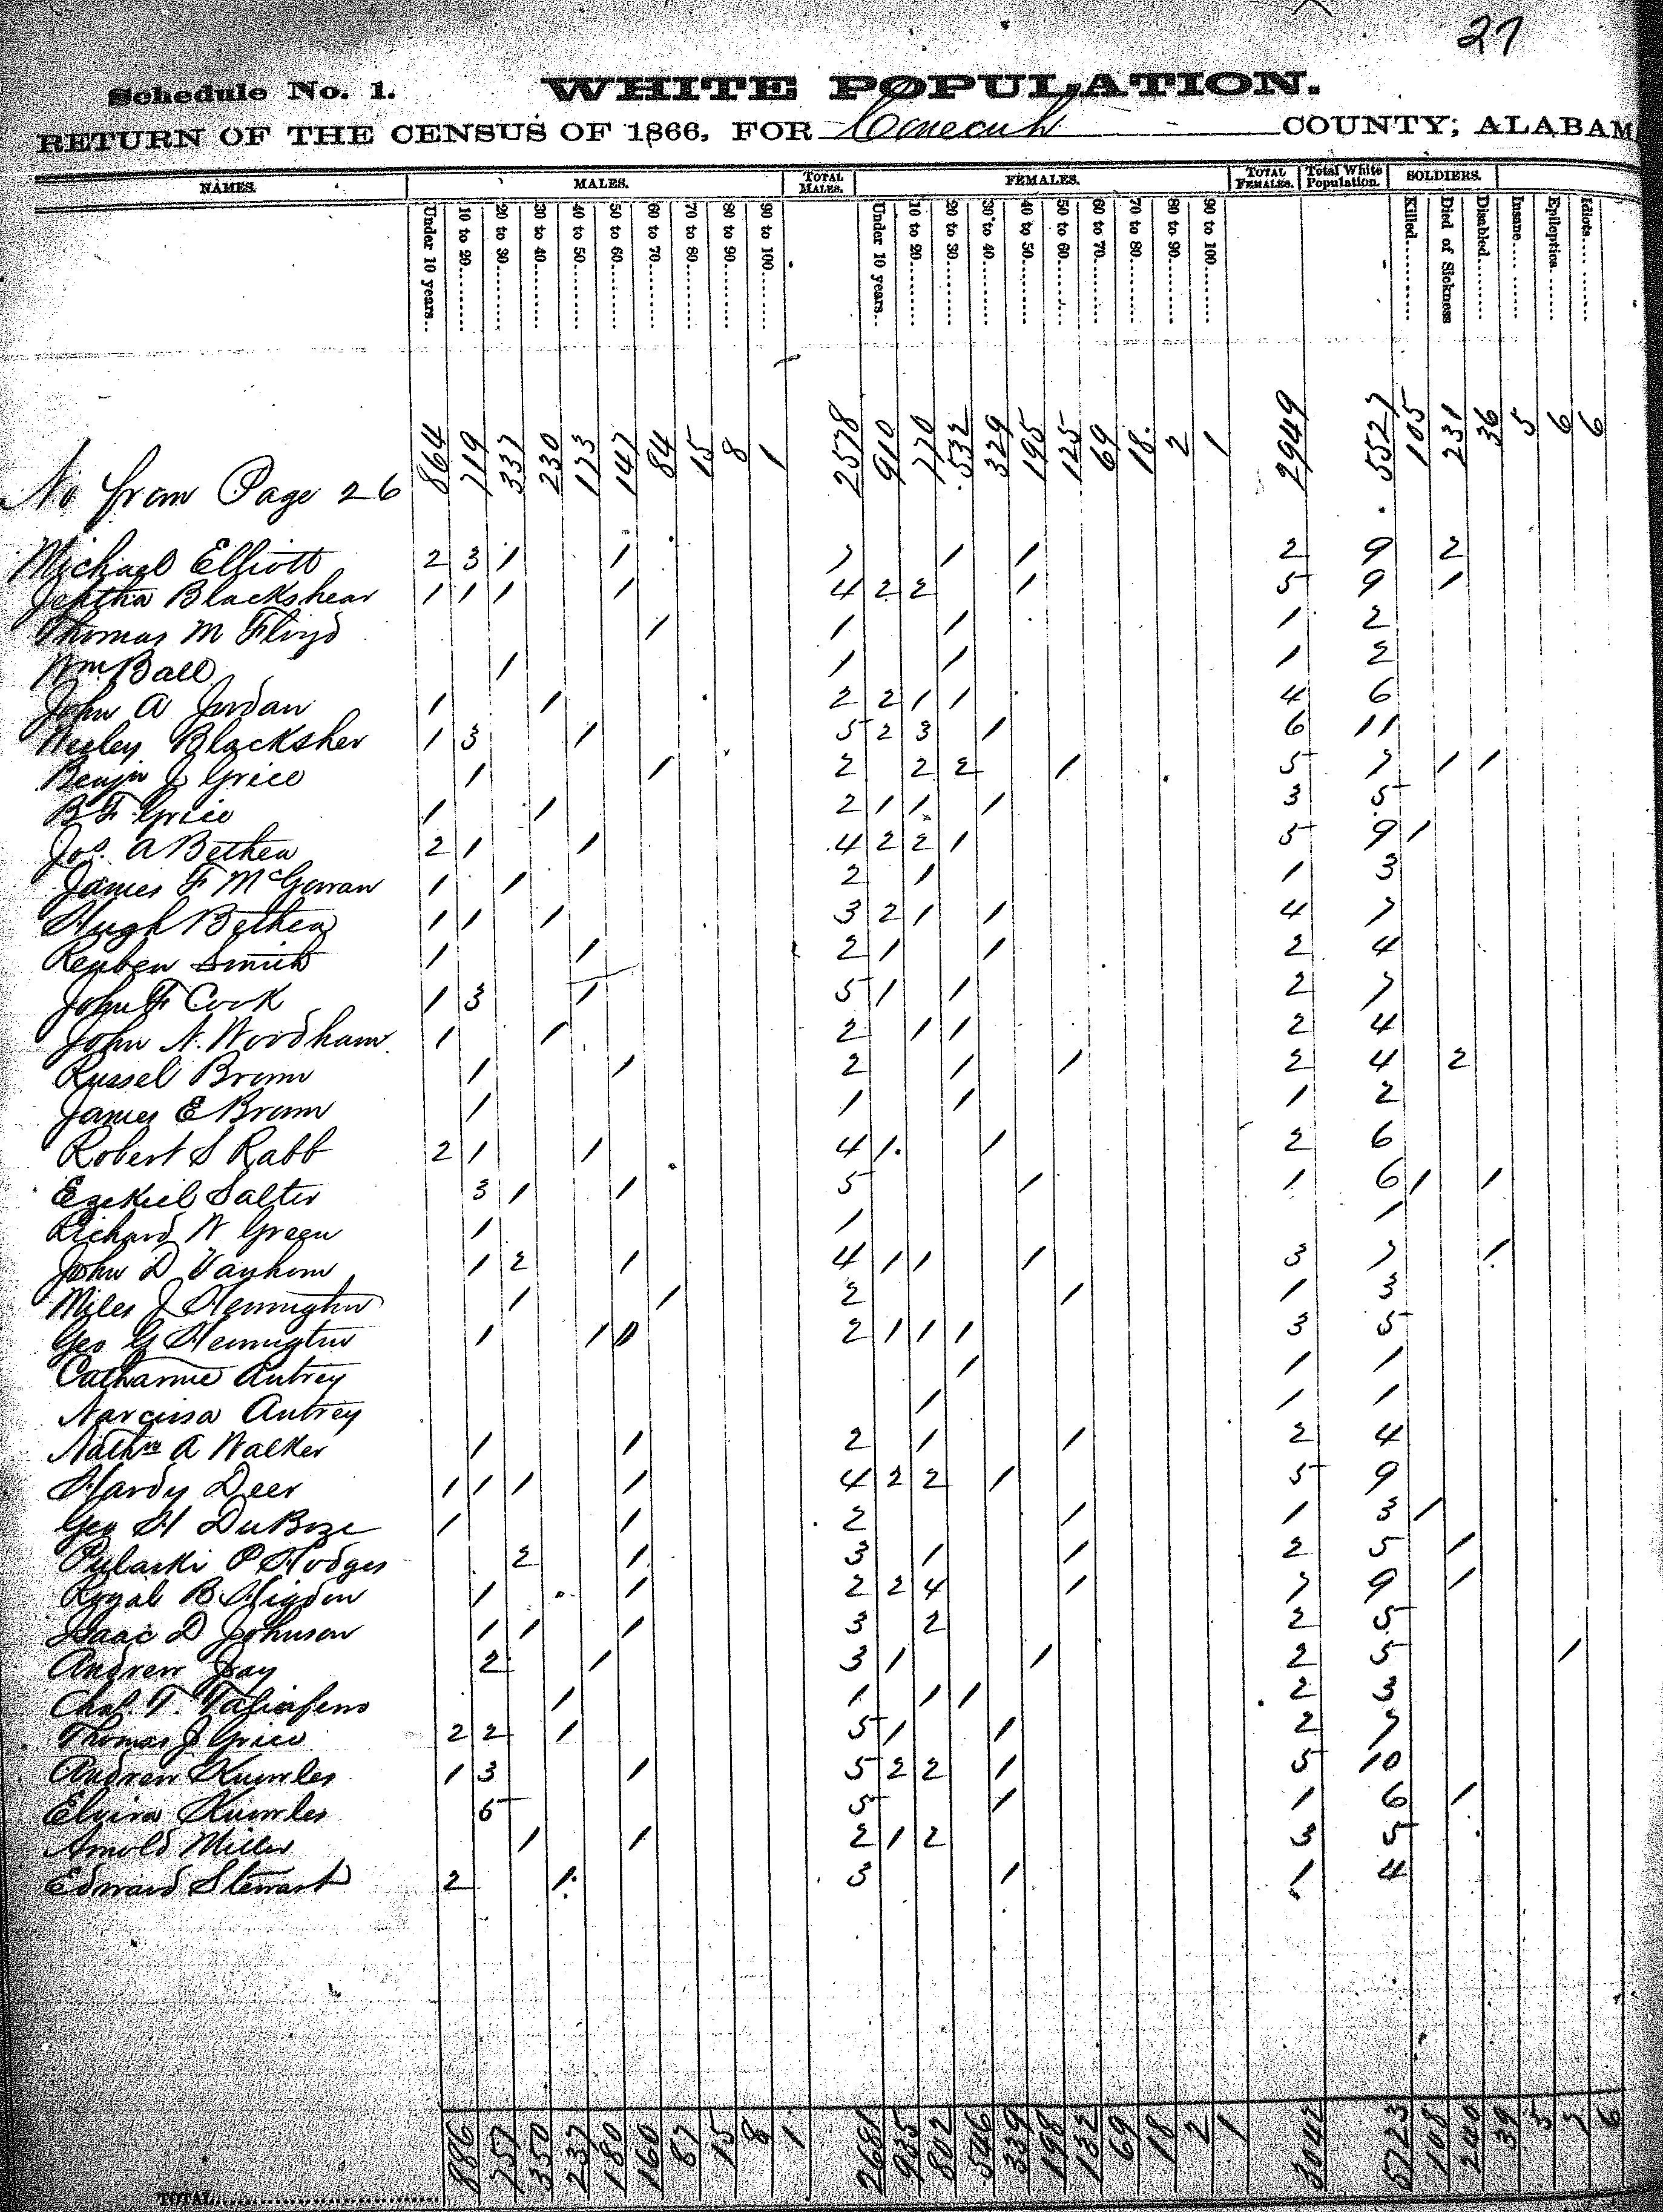 27
Schedule No. 1. WHITE POPULATION.
RETURN OF THE CENSUS OF 1866, FOR Conecuh COUNTY; ALABAM
NAMES. MALES. TOTAL MALES. FEMALES. TOTAL FEMALES. Total White Population. SOLDIERS.
Under 10 years.. 10 to 20 20 to 30 30 to 40 40 to 50 50 to 60 60 to 70 70 to 80 80 to 90 90 to 100 Under 10 years.. 10 to 20 20 to 30 30 to 40 40 to 50 50 to 60 60 to 70 70 to 80 80 to 90 90 to 100 Killed Died of Sickness Disabled Insane Epileptics Idiots
No from Page 26 864 719 337 230 173 147 84 15 8 1 2578 910 770 532 329 195 125 69 18 2 1 2949 5527 105 231 36 5 6 6
Michael Elliott 2 3 1 1 7 1 1 2 9 2
Jeptha Blackshear 1 1 1 1 4 2 2 1 5 9 1
Thomas M Floyd 1 1 1 1 2
Wm Ball 1 1 1 1 2
John A Jordan 1 1 2 2 1 1 4 6
Wesley Blacksher 1 3 1 5 2 3 1 6 11
Benjn J Grice 1 1 2 2 2 1 5 7 1 1
B F Grice 1 1 2 1 1 1 3 5
Jos. A Bethea 2 1 1 4 2 2 1 5 9 1
James F McGowan 1 1 2 1 1 3
Hugh Bethea 1 1 1 3 2 1 1 4 7
Reuben Smith 1 1 2 1 1 2 4
John F Cook 1 3 1 5 1 1 2 7
John N. Woodham 1 1 2 1 1 2 4
Russel Brown 1 1 2 1 1 2 4 2
James E Brown 1 1 1 1 2
Robert S Rabb 2 1 1 4 1 1 2 6
Ezekiel Salter 3 1 1 5 1 1 6 1 1
Richard N Green 1 1 1
John D Vanhorn 1 2 1 4 1 1 1 3 7 1
Miles J Hemington 1 1 2 1 1 3
Geo G Hemington 1 1 2 1 1 1 3 5
Catharine Autrey 1 1 1
Narcissa Autrey 1 1 1
Nathn A Walker 1 1 2 1 1 2 4
Hardy Deer 1 1 1 1 4 2 2 1 5 9
Geo H DuBoze 1 1 2 1 1 3 1
Pulaski P Hodges 2 1 3 1 1 2 5 1
Royal B Higdon 1 1 2 2 4 1 7 9 1
Isaac D Johnson 1 1 1 3 2 2 5
Andrew Jay 2 1 3 1 1 2 5 1
Chas. T. Taliaferro 1 1 1 1 2 3
Thomas J Grice 2 2 1 5 1 1 2 7
Andrew Knowles 1 3 1 5 2 2 1 5 10
Elvira Knowles 5 5 1 1 6 1
Arnold Miller 1 1 2 1 2 3 5
Edward Stewart 2 1 3 1 1 4
TOTAL 886 757 350 237 180 160 87 15 8 1 2681 935 802 546 339 198 132 69 18 2 1 3042 5723 108 240 39 5 7 6